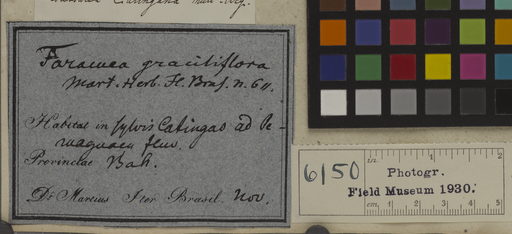 Faramea graciliflora
Mart. Herb. Fl. Bras. n. 611.
Habitat in sylvis Catingas ad Pe-
ruaguacu fluv.
Provinciae Bah.
Dr Martius Iter Brasil. Nov.
6150
Photogr.
Field Museum 1930.
in.
1
2
cm.
1
2
3
4
5